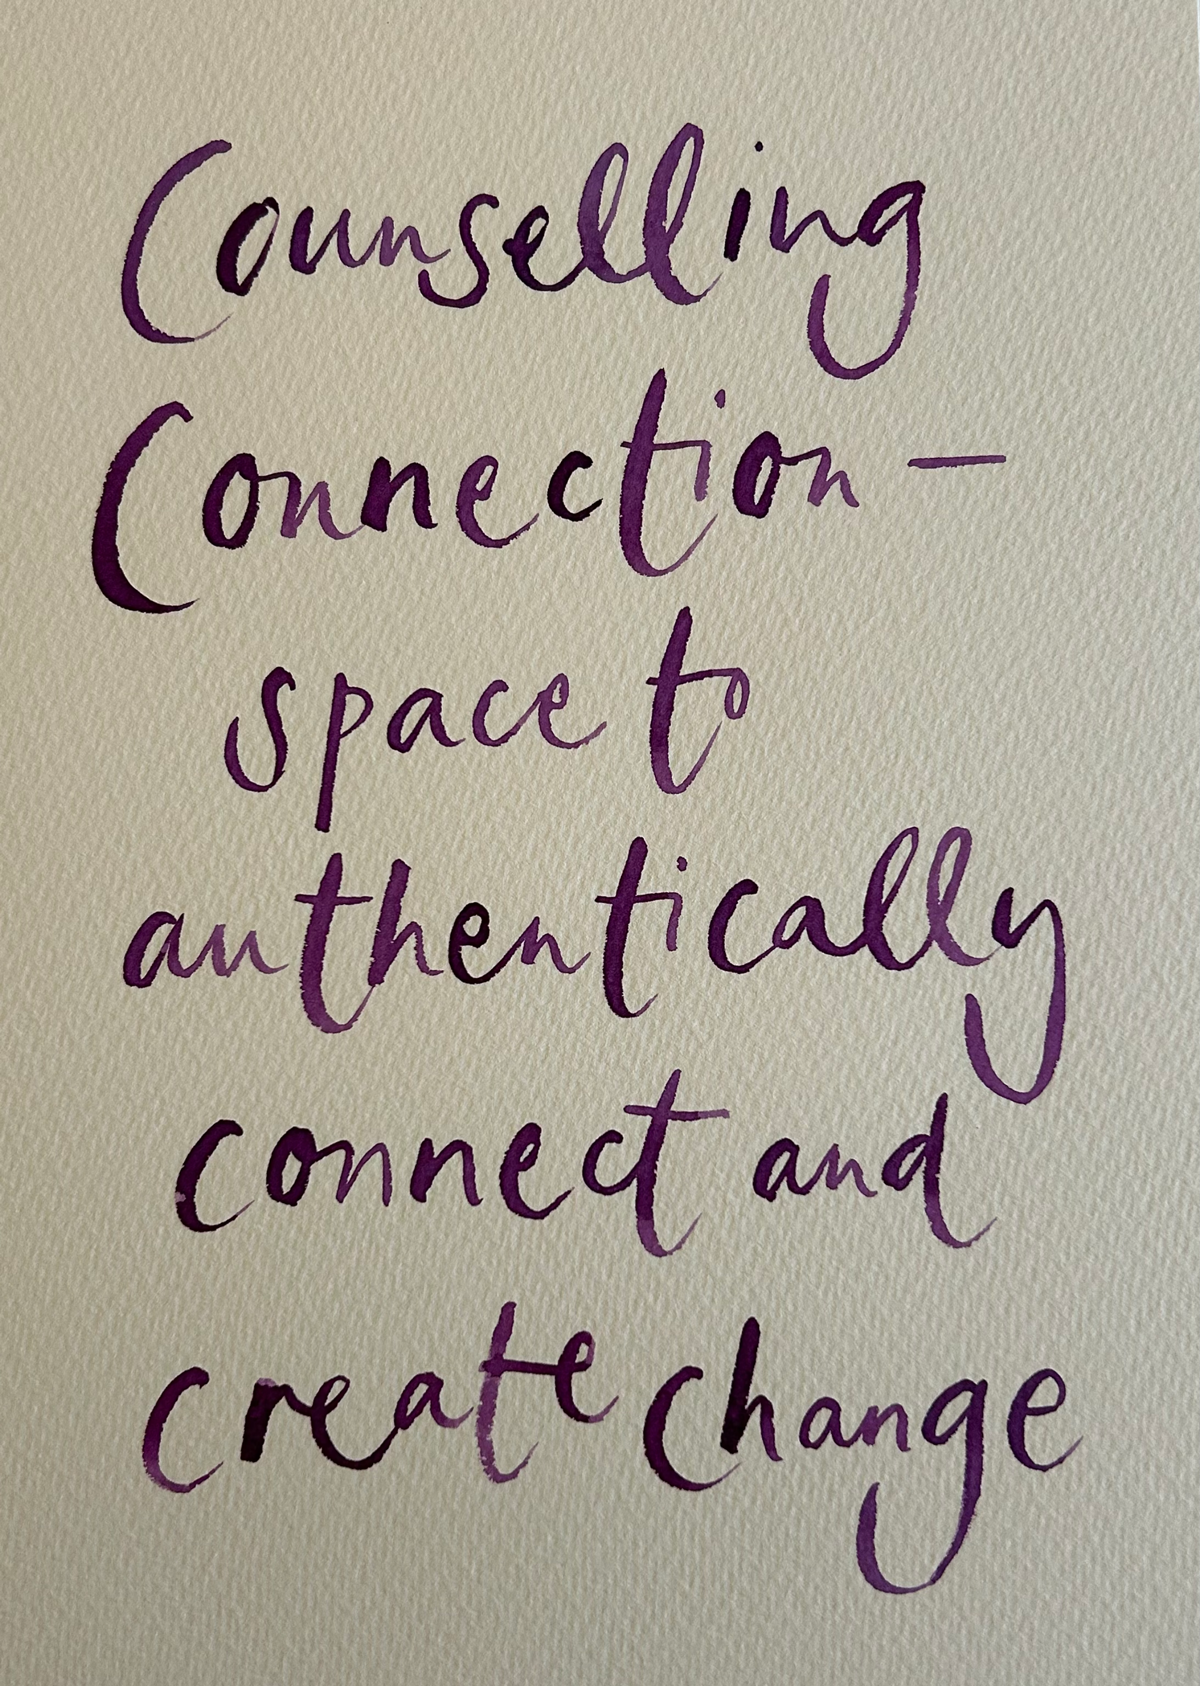 Counselling
Connection —
space to
authentically
connect and
create change